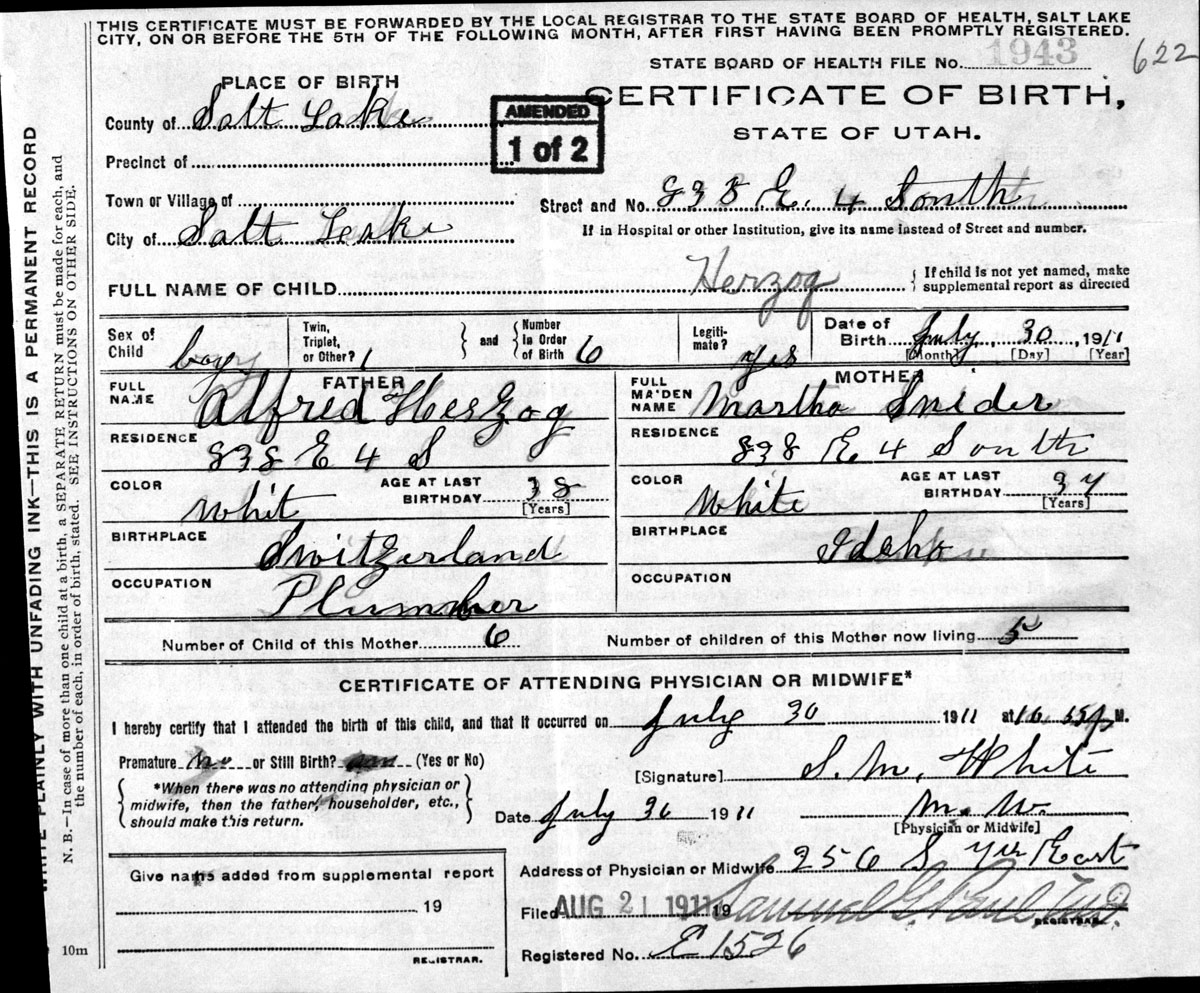 THIS CERTIFICATE MUST BE FORWARDED BY THE LOCAL REGISTRAR TO THE STATE BOARD OF HEALTH, SALT LAKE
CITY, ON OR BEFORE THE 5TH OF THE FOLLOWING MONTH, AFTER FIRST HAVING BEEN PROMPTLY REGISTERED.
STATE BOARD OF HEALTH FILE No. 1943 622
PLACE OF BIRTH
CERTIFICATE OF BIRTH,
STATE OF UTAH.
AMENDED
1 of 2
County of Salt Lake
Precinct of
Town or Village of
Street and No. 838 E. 4 South
City of Salt Leake
If in Hospital or other Institution, give its name instead of Street and number.
FULL NAME OF CHILD Herzog { If child is not yet named, make
supplemental report as directed
Sex of Child boy
Twin, Triplet, or Other? 1 } and { Number In Order of Birth 6
Legiti-mate? yes
Date of Birth July 30, 1911
[Month] [Day] [Year]
FATHER
FULL NAME Alfred Herzog
MOTHER
FULL MAIDEN NAME Martha Snider
RESIDENCE 838 E 4 S
RESIDENCE 838 E 4 South
COLOR Whit AGE AT LAST BIRTHDAY 38 [Years]
COLOR White AGE AT LAST BIRTHDAY [Years]
BIRTHPLACE Switzerland
BIRTHPLACE Idaho
OCCUPATION Plumber
OCCUPATION
Number of Child of this Mother 6 Number of children of this Mother now living 5
CERTIFICATE OF ATTENDING PHYSICIAN OR MIDWIFE*
I hereby certify that I attended the birth of this child, and that it occurred on July 30 1911 at M.
Premature no or Still Birth? (Yes or No)
{ *When there was no attending physician or
midwife, then the father, householder, etc.,
should make this return. }
[Signature] S. M. White
Date July 1911 M. W.
[Physician or Midwife]
Address of Physician or Midwife 256 S 7th East
Give name added from supplemental report
19
REGISTRAR.
Filed AUG 21 1911 19 Samuel G. Paul
REGISTRAR.
Registered No. E 1526
10m
WRITE PLAINLY WITH UNFADING INK—THIS IS A PERMANENT RECORD
N. B.—In case of more than one child at a birth, a SEPARATE RETURN must be made for each, and
the number of each, in order of birth, stated. SEE INSTRUCTIONS ON OTHER SIDE.